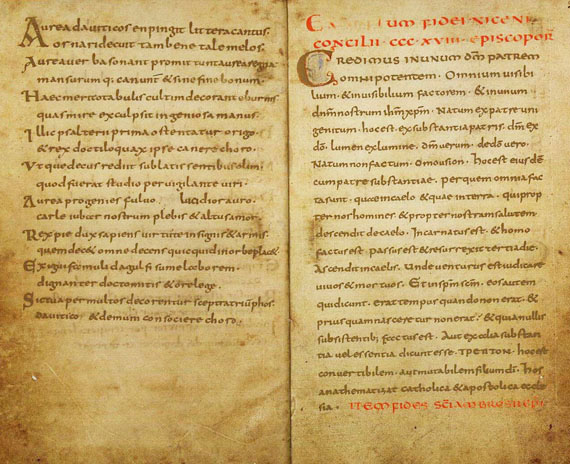 Aurea daviticos en pingit littera cantus.
ornari decuit tam bene tale melos.
Aurea uerba sonant promittunt aurea regna
mansurumq; canunt & sine fine bonum.
Haec merito tabulis cultim decorant eburnis
quas mire exculpsit ingeniosa manus.
Illic psalterii prima ostentatur origo
& rex doctiloquax ipse canere choro.
Utque decus rediit sublatis sentibus olim
quod fuerat studio pervigilante viri.
Aurea progenies fulvo lucidior auro.
carle iubar nostrum plebis & altus amor.
Rex pie dux sapiens virtute insignis & armis.
quem dec& omne decens quicquid in orbe plac&.
Exigui famuli dagulfi sume laborem.
dignanter docto mitis & ore lege.
Sic tua per multos decorentur sceptra triumphos.
Davitico & demum consociere choro.
FIDEI NICENI
CONCILII CCC XVIII EPISCOPOR
CREDIMUS IN UNUM DM PATREM
OMNIPOTENTEM. Omnium visibi
lium. & invisibilium factorem. & in unum
dnm nostrum ihm xpm. Natum ex patre uni
genitum. hoc est. ex substantia patris. dm ex
do. lumen ex lumine. dm verum. de do vero.
Natum non factum. Omousion. hoc est eiusdē
cum patre substantiae. per quem omnia fac
ta sunt. quae in caelo & quae in terra. qui prop
ter nos homines & propter nostram salutem
descendit de caelo. Incarnatus est. & homo
factus est. passus est & resurrexit tertia die.
Ascendit in caelis. Unde venturus est iudicare
vivos & mortuos. Et in spm scm. eos autem
qui dicunt. erat tempus quando non erat. &
prius quam nasceretur non erat. & quia nullis
subsistentib; factus est. Aut ex alia substan
tia vel essentia dicunt esse. TPEΠTON. hoc est
convertibilem. aut mutabilem filium di. hos
anathematizat catholica & apostolica eccle
sia. ITEM FIDES SCI AMBROSII EPI